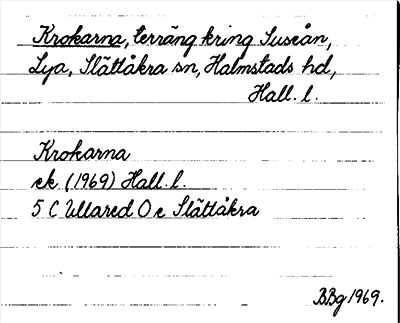 Krokarna, terräng kring Suseån,
Lya, Slättåkra sn, Halmstads hd,
Hall. l.
Krokarna
ek (1969) Hall. l.
5 C Ullared O e Slättåkra
BBg 1969.